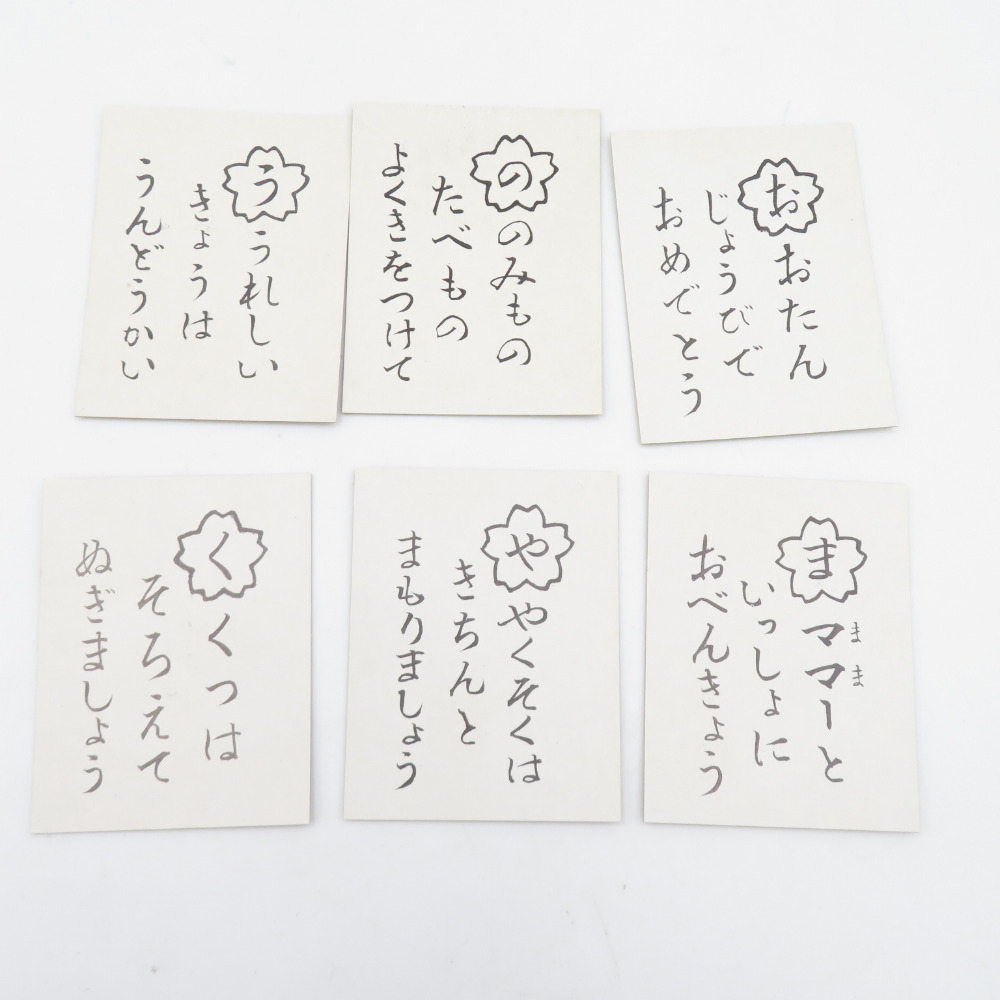 う
うれしい
きょうは
うんどうかい
の
のみもの
たべもの
よくきをつけて
お
おたん
じょうびで
おめでとう
く
くつは
そろえて
ぬぎましょう
や
やくそくは
きちんと
まもりましょう
ま
ママーと
まま
いっしょに
おべんきょう